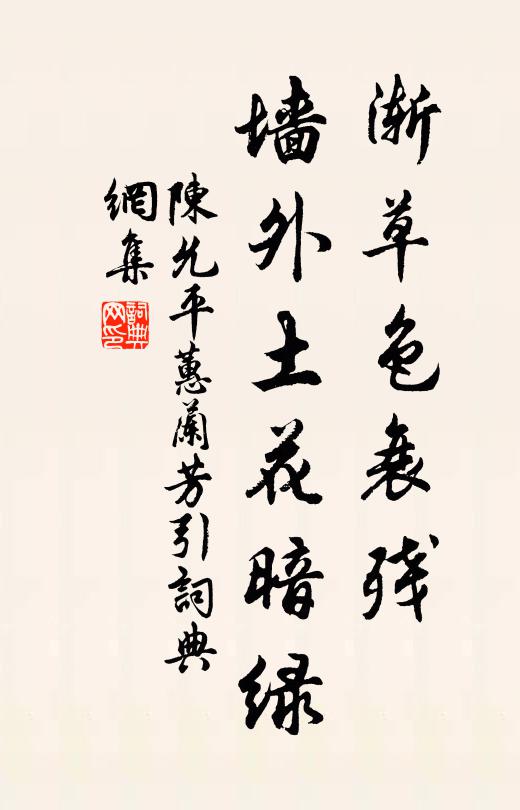 渐草色衰残
墙外土花暗绿
陳允平蕙蘭芳引詞典
網集
詞典
网印